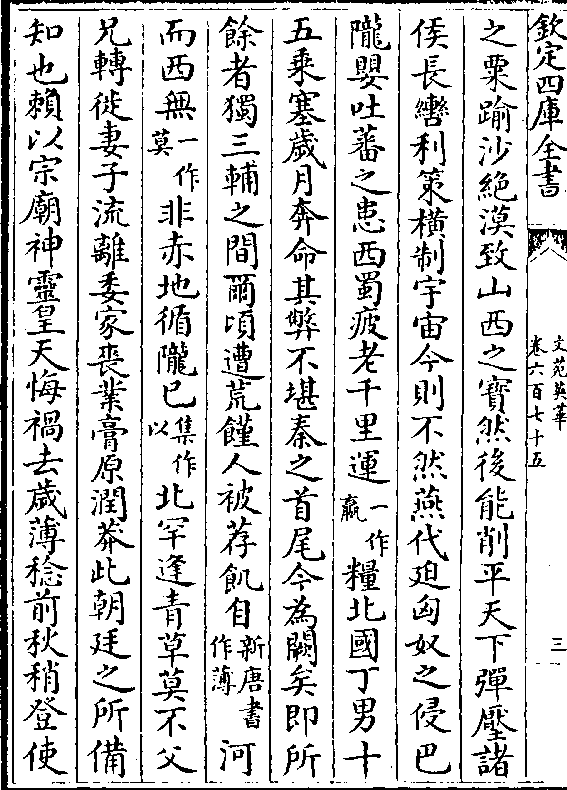 欽定四庫全書
文苑英華
卷六百七十五
三
之粟踰沙絶漠致山西之寳然後能削平天下彈壓諸
侯長轡利策横制宇宙今則不然燕代迫匈奴之侵巴
隴嬰吐蕃之患西蜀疲老千里運一作贏糧北國丁男十
五乘塞歲月奔命其弊不堪秦之首尾今為闕矣即所
餘者獨三輔之間爾頃遭荒饉人被荐飢自新唐書作薄河
而西無一作莫非赤地循隴已集作以北罕逢青草莫不父
兄轉徙妻子流離委家喪業膏原潤莽此朝廷之所備
知也賴以宗廟神靈皇天悔禍去歲薄稔前秋稍登使